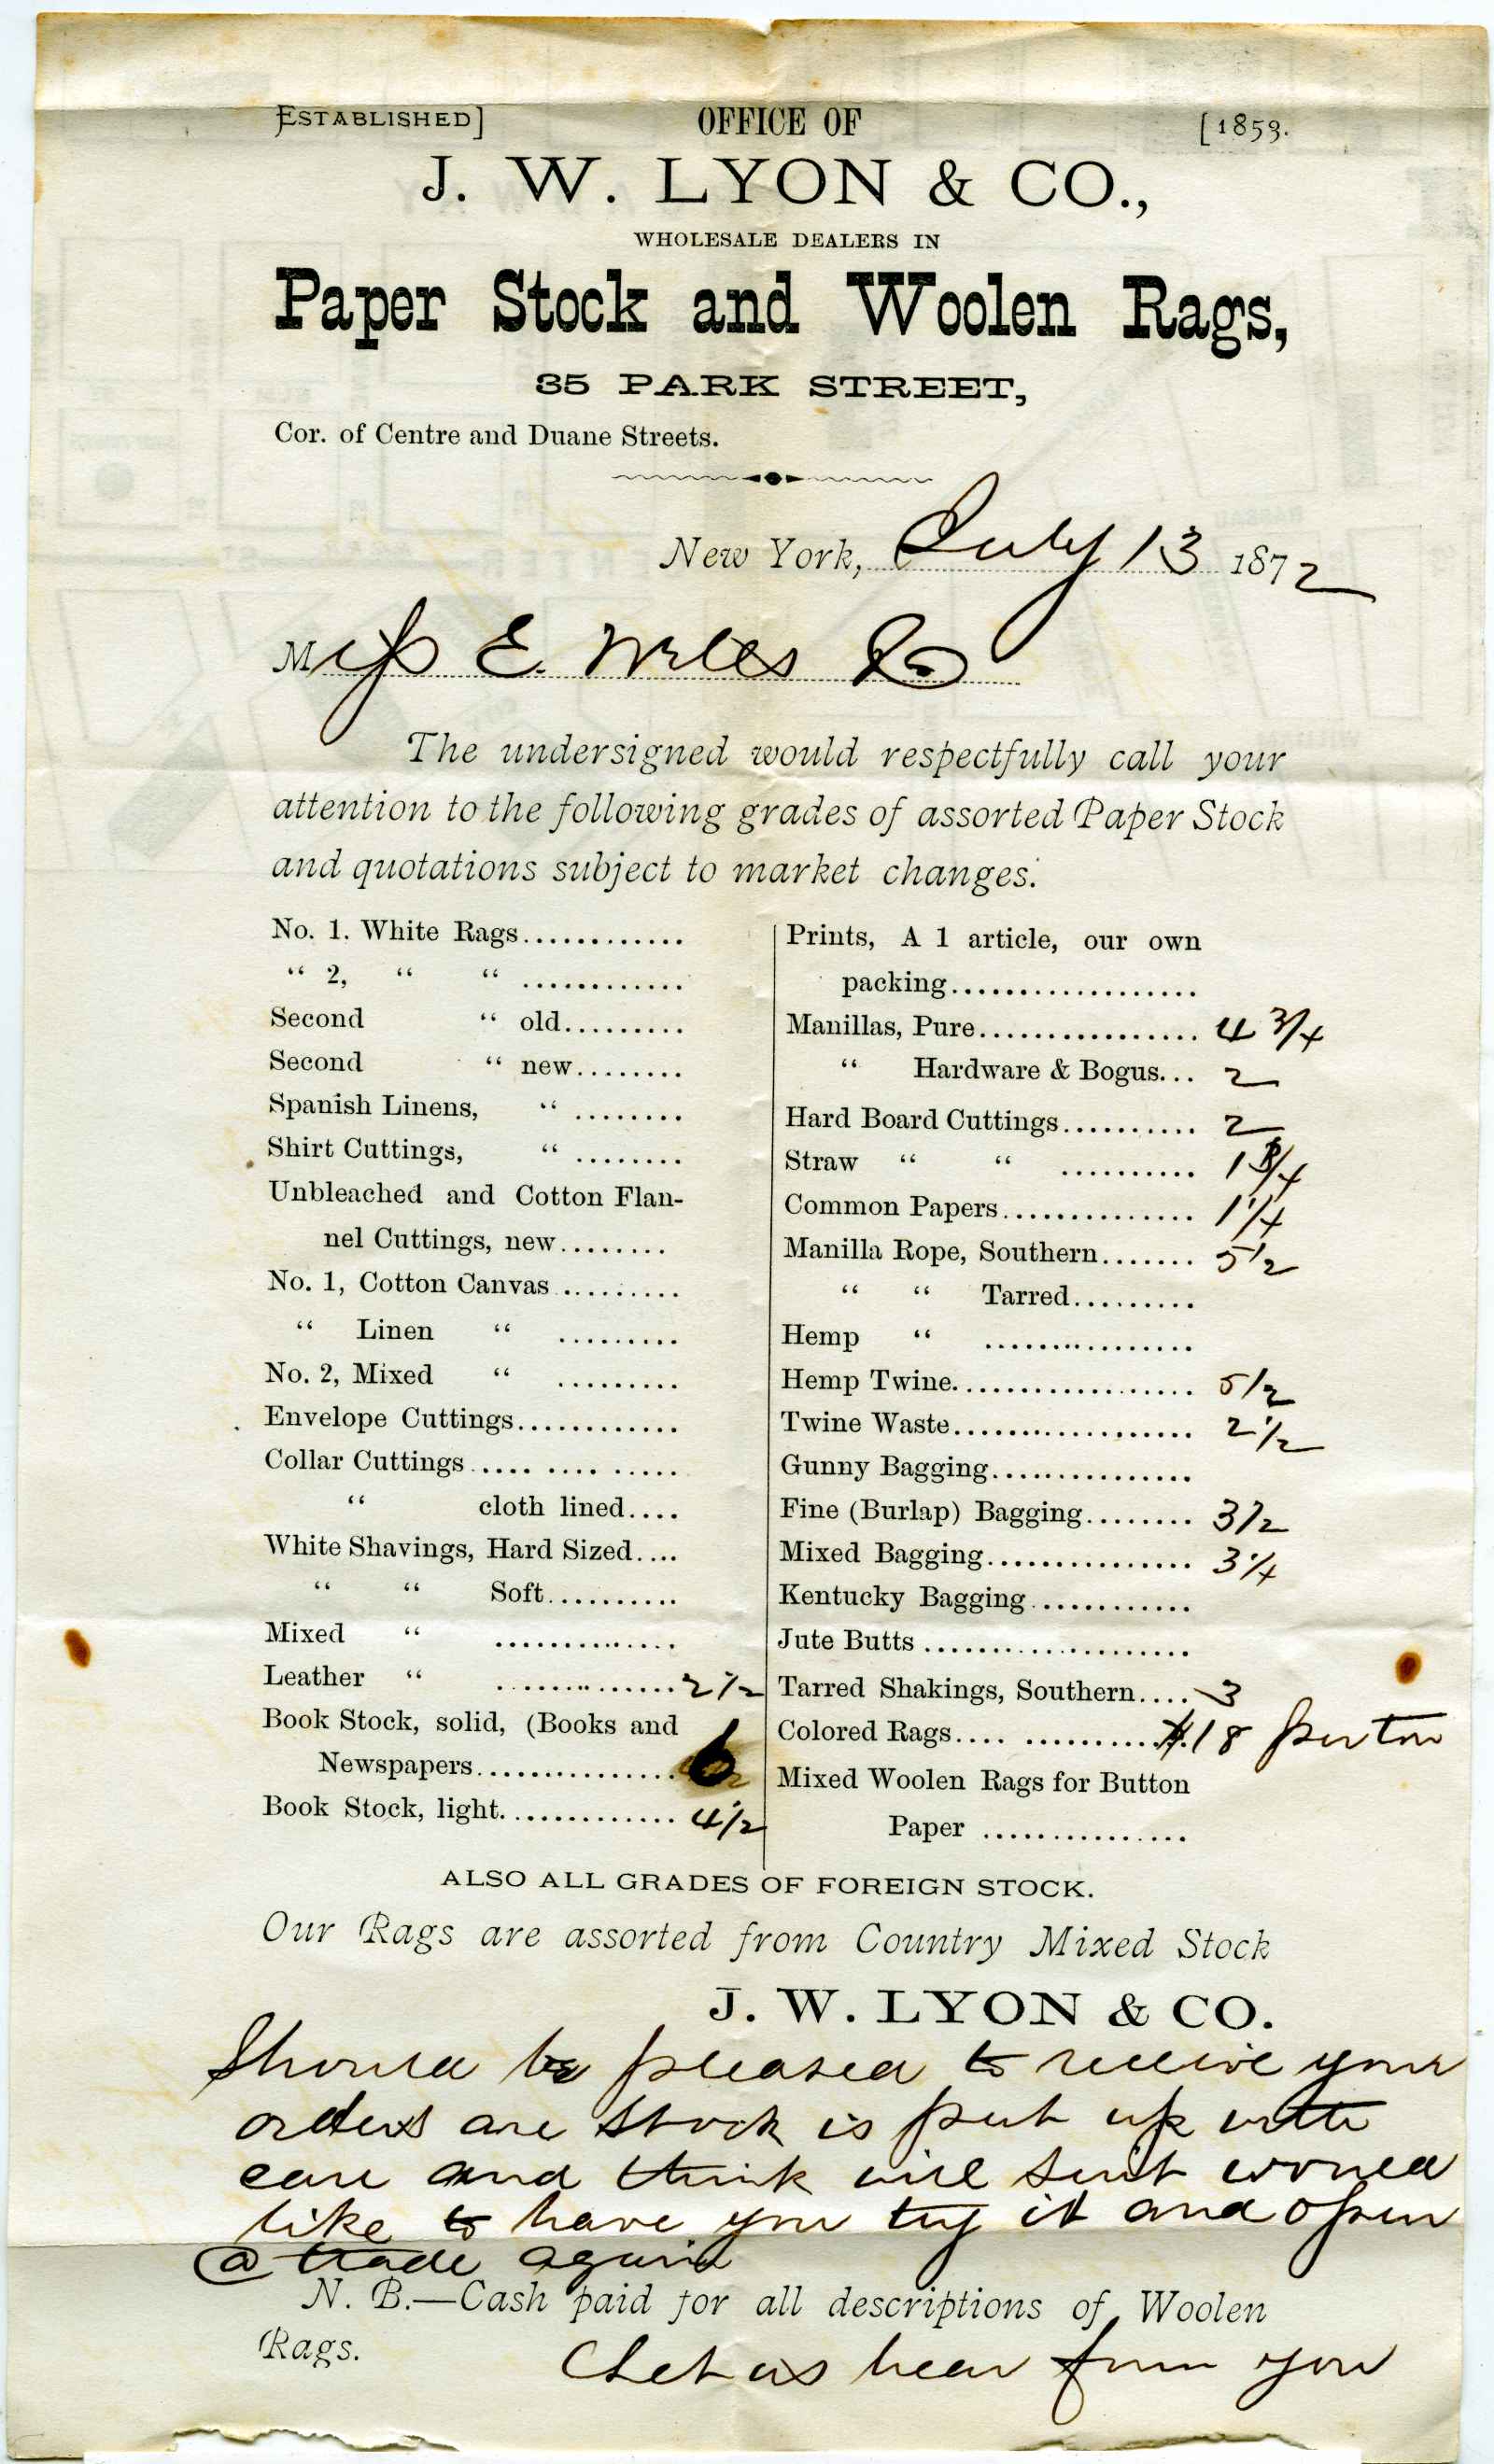 ESTABLISHED] OFFICE OF [1853.
J. W. LYON & CO.,
WHOLESALE DEALERS IN
Paper Stock and Woolen Rags,
35 PARK STREET,
Cor. of Centre and Duane Streets.
New York, July 13 1872
M E. Co
The undersigned would respectfully call your
attention to the following grades of assorted Paper Stock
and quotations subject to market changes.
No. 1. White Rags............
“ 2, “ “ ............
Second “ old.........
Second “ new........
Spanish Linens, “ ........
Shirt Cuttings, “ ........
Unbleached and Cotton Flan-
nel Cuttings, new........
No. 1, Cotton Canvas .........
“ Linen “ .........
No. 2, Mixed “ .........
Envelope Cuttings............
Collar Cuttings .... .... .....
“ cloth lined....
White Shavings, Hard Sized....
“ “ Soft..........
Mixed “ ..............
Leather “ ..............2 1/2
Book Stock, solid, (Books and
Newspapers............... 6
Book Stock, light.............. 4 1/2
Prints, A 1 article, our own
packing...................
Manillas, Pure................. 4 3/4
“ Hardware & Bogus... 2
Hard Board Cuttings.......... 2
Straw “ “ .......... 1 3/4
Common Papers............... 1 1/4
Manilla Rope, Southern....... 5 1/2
“ “ Tarred.........
Hemp “ ................
Hemp Twine................... 5 1/2
Twine Waste................... 2 1/2
Gunny Bagging................
Fine (Burlap) Bagging........ 3 1/2
Mixed Bagging................ 3 1/4
Kentucky Bagging............
Jute Butts ....................
Tarred Shakings, Southern.... 3
Colored Rags.... ............ $18 per ton
Mixed Woolen Rags for Button
Paper ................
ALSO ALL GRADES OF FOREIGN STOCK.
Our Rags are assorted from Country Mixed Stock
J. W. LYON & CO.
Should be pleased to receive your
orders are stock is put up with
care and think will suit would
like to have you try it and open
a trade again
N. B.—Cash paid for all descriptions of Woolen
Rags.
Let us hear from you